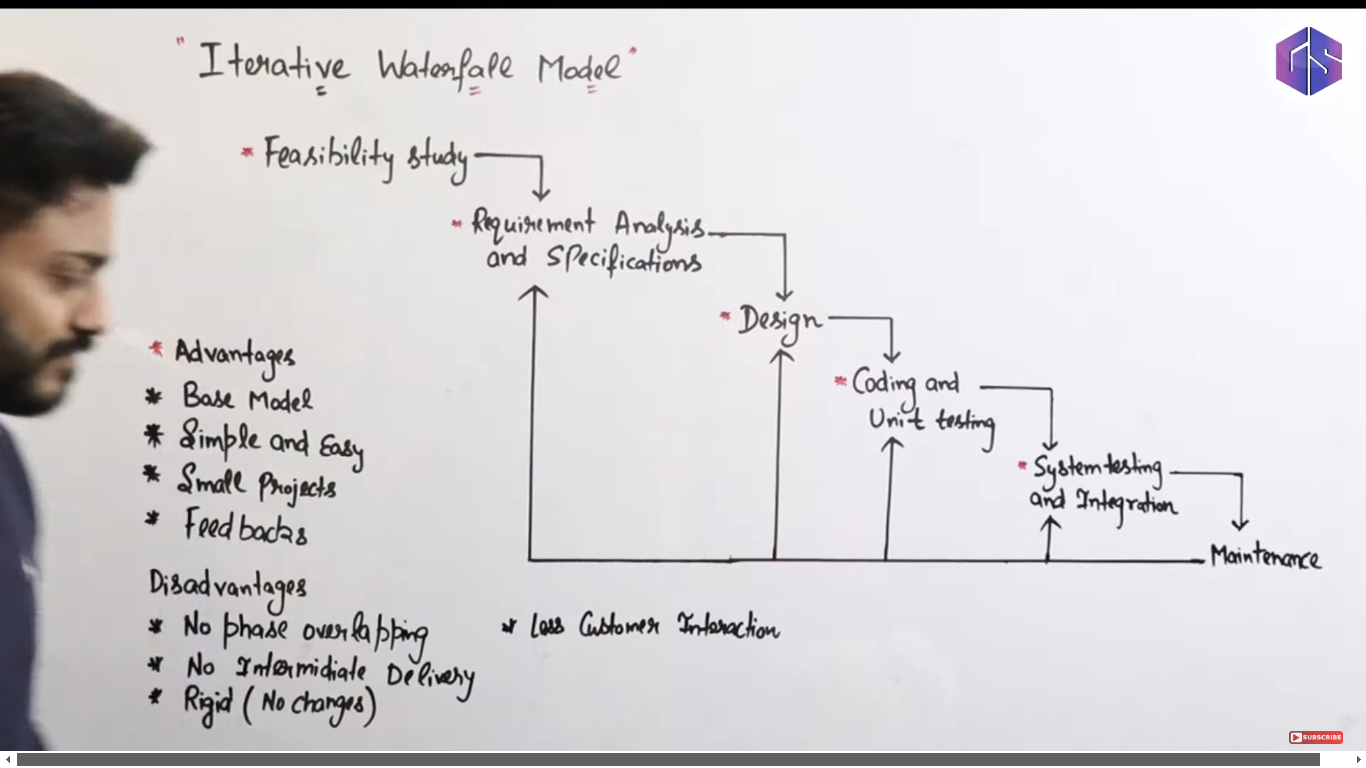 "Iterative Waterfall Model"
* Feasibility study
* Requirement Analysis
and Specifications
* Design
* Coding and
Unit testing
* System testing
and Integration
Maintenance
* Advantages
* Base Model
* Simple and Easy
* Small Projects
* Feedbacks
Disadvantages
* No phase overlapping
* No Intermidiate Delivery
* Rigid (No changes)
* Less Customer Interaction
SUBSCRIBE